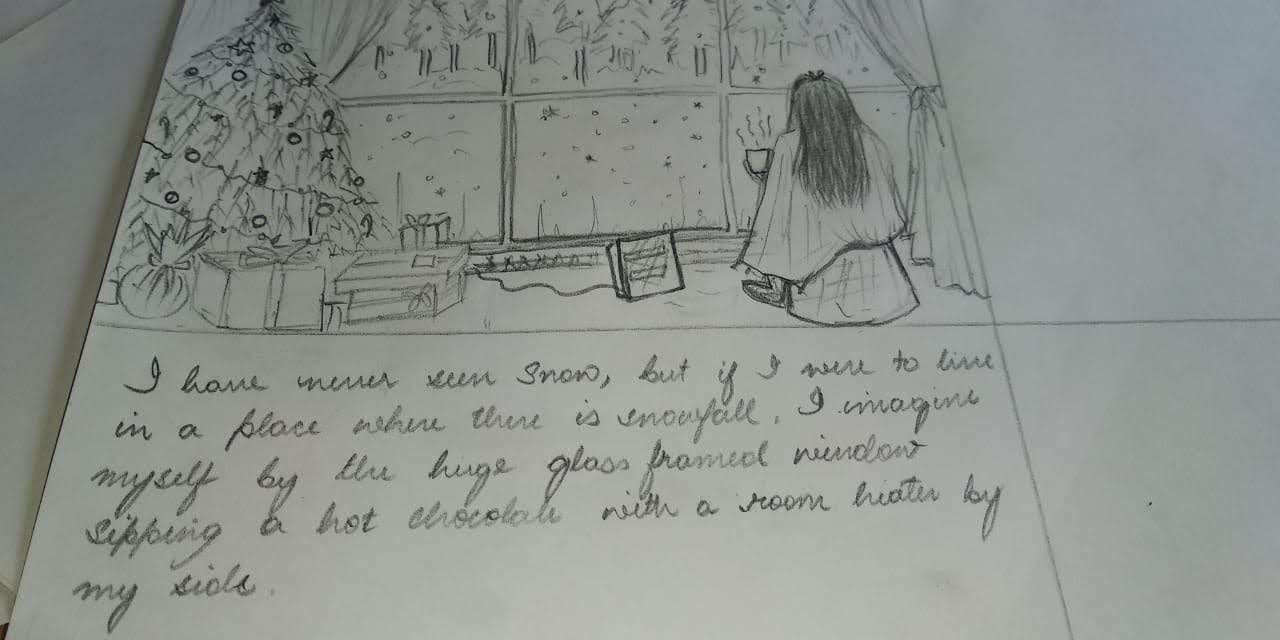 I have never seen Snow, but if I were to live
in a place where there is snowfall. I imagine
myself by the huge glass framed window
sipping a hot chocolate with a room heater by
my side.